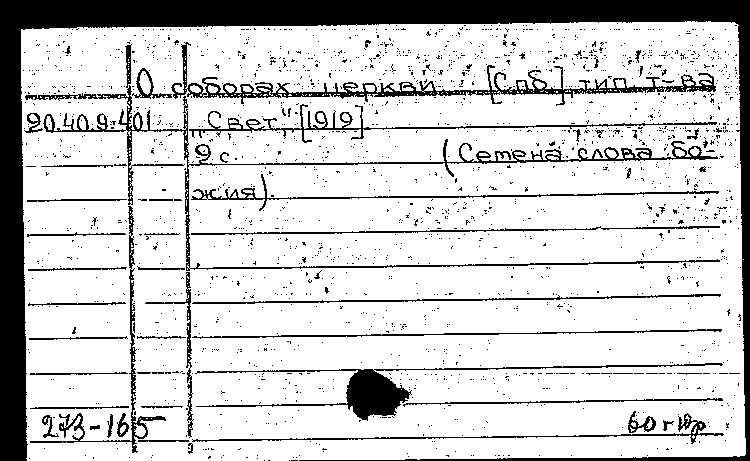 О соборах церкви [Спб], тип. т-ва
20.40.9.401 „Свет“, [1919].
9 с. (Семена слова бо-
жия).
273-165 60 г